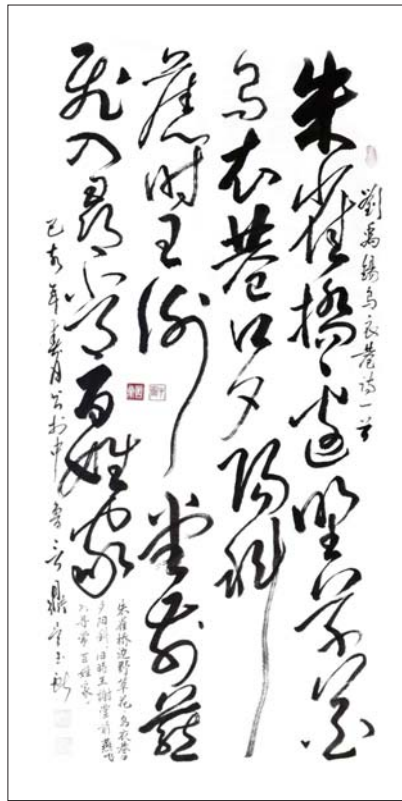 劉禹錫烏衣巷诗一首
朱雀橋邊野草花
烏衣巷口夕陽斜
舊時王謝堂前燕
飛入尋常百姓家
朱雀桥边野草花，乌衣巷口
夕阳斜，旧时王谢堂前燕飞
入寻常百姓家。
己亥年春月